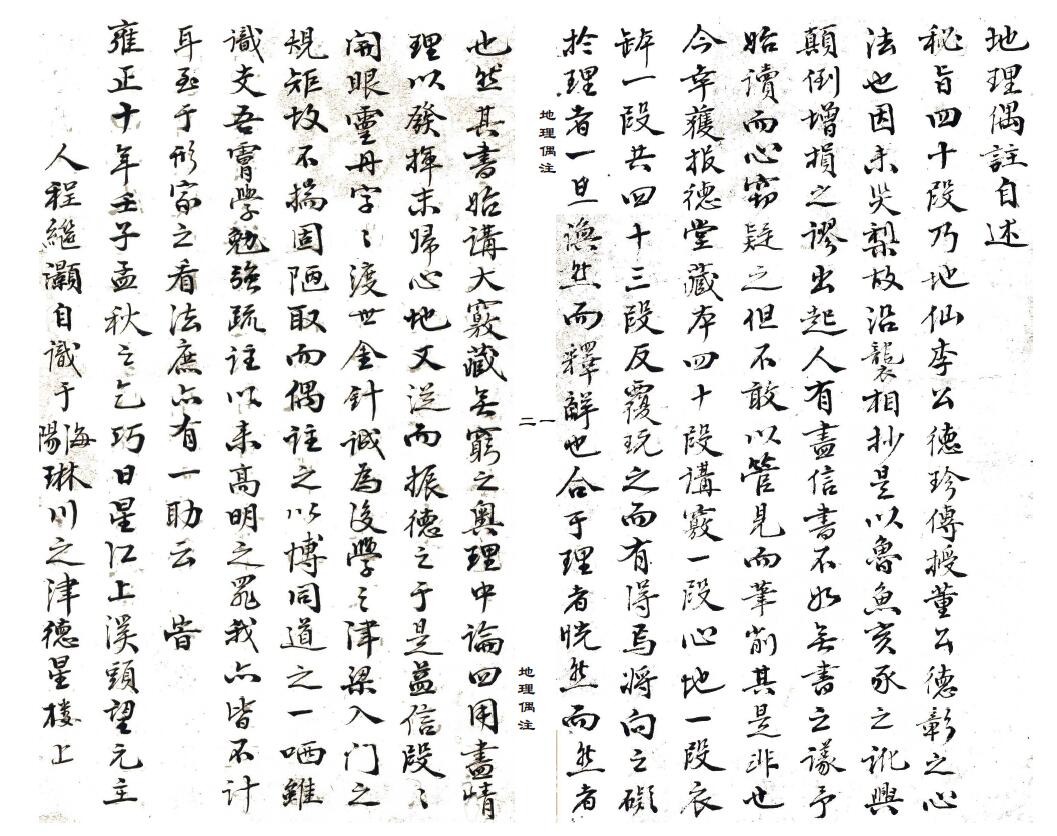 地理偶註自述
秘旨四十段乃地仙李公德珍傳授董公德彰之心
法也因未災梨故沿襲相抄是以魯魚亥豕之訛興
顛倒增損之謬出起人有盡信書不如无書之議予
始讀而心窃疑之但不敢以管見而筆削其是非也
今幸獲振德堂藏本四十段講竅一段心地一段衣
缽一段共四十三段反覆玩之而有得焉將向之礙
於理者一旦渙然而釋解也合于理者恍然而然者
地理偶注
一
二
地理偶注
也然其書始講大竅藏无窮之奧理中論四用盡晴
理以發揮末歸心地又從而振德之于是益信段〻
開眼靈丹字〻渡世金針誠為後學之津梁入门之
規矩故不揣固陋取而偶註之以博同道之一哂雖
識支吾膚學勉強疏註以来高明之罪我亦皆不計
耳至于形家之看法庶亦有一助云　旹
雍正十年壬子孟秋之乞巧日星江上溪頭望元主
人程繼灝自識于海陽琳川之津德星樓上